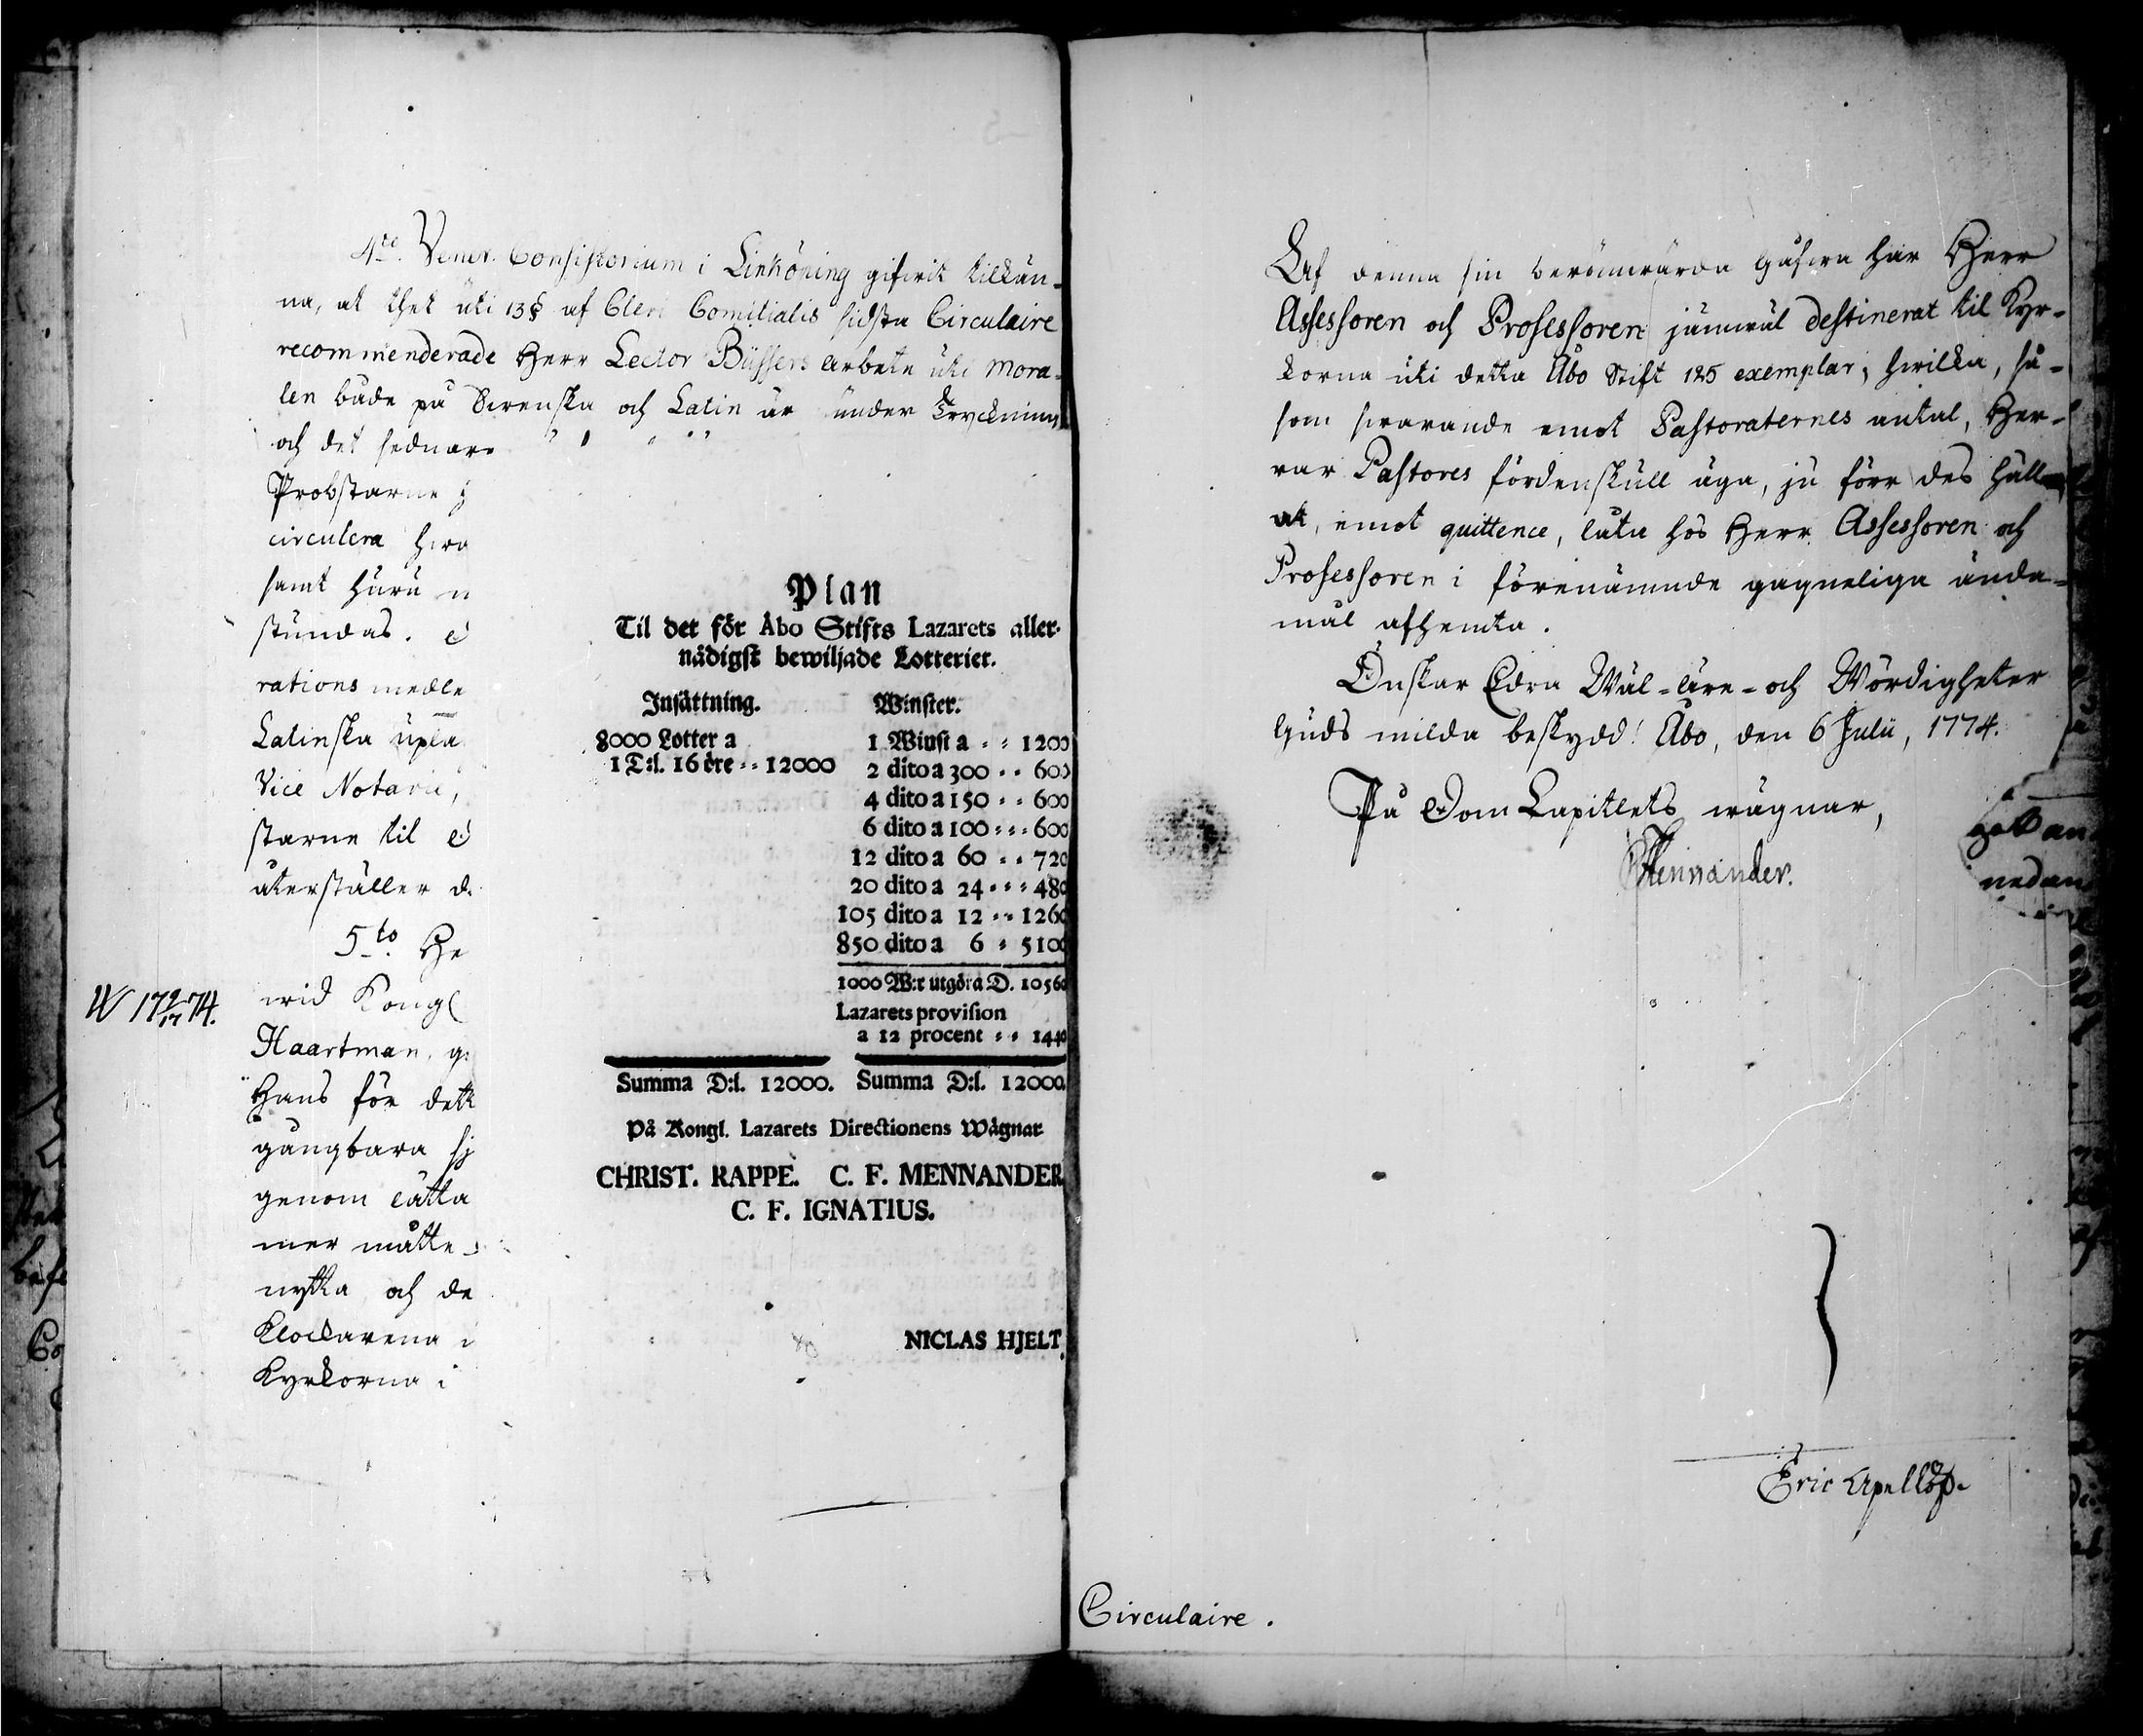 4to. Vener. Consistorium i Linköping gifwit tilkän-
na, at thet uti 13 § af Cleri Comitialis sidsta Circulaire
recommenderade Herr Lector Büssers arbete uti Mora-
len både på Swenska och Latin är under tryckning
och det sednare
Probstarne
circulera hwa
samt huru
stundas.
rations medle
Latinska upla
Vice Notarii,
starne til
återställer d
5to. He
W 17 9/17 74.
wid Kongl
Haartman, g
Hans för dett
gångbara sj
genom lätta
mer måtte
nytta och de
Klockarena i
Kyrkorna i
Plan
Til det för Åbo Stifts Lazarets aller-
nådigst bewiljade Lotterier.
Insättning.
8000 Lotter a
1 D:l. 16 öre - - 12000
Winster.
1 Winst a - - 1200
2 dito a 300 - - 600
4 dito a 150 - - 600
6 dito a 100 - - - 600
12 dito a 60 - - 720
20 dito a 24 - - - 480
105 dito a 12 - - 1260
850 dito a 6 - 5100
1000 W:r utgöra D. 10560
Lazarets provision
a 12 procent - - 1440
Summa D:l. 12000. Summa D:l. 12000.
På Kongl. Lazarets Directionens Wägnar
CHRIST. RAPPE. C. F. MENNANDER.
C. F. IGNATIUS.
NICLAS HJELT.
Af denna sin berömwärda gåfwa har Herr
Assessoren och Professoren jämwäl destinerat til Kyr-
korna uti detta Åbo Stift 125 exemplar, hwilka, så-
som swarande emot Pastoraternes antal, Her-
rar Pastores fördenskull äga, ju förr des häll
at, emot quittence, låta hos Herr Assessoren och
Professoren i förenämnde gagneliga ända-
mål afhemta.
Önskar Edra Wäl-äre- och Wördigheter
Guds milda beskydd! Åbo, den 6 Julii, 1774.
På Dom Capitlets wägnar,
Mennander.
nedan
Eric Apellöf.
Circulaire.